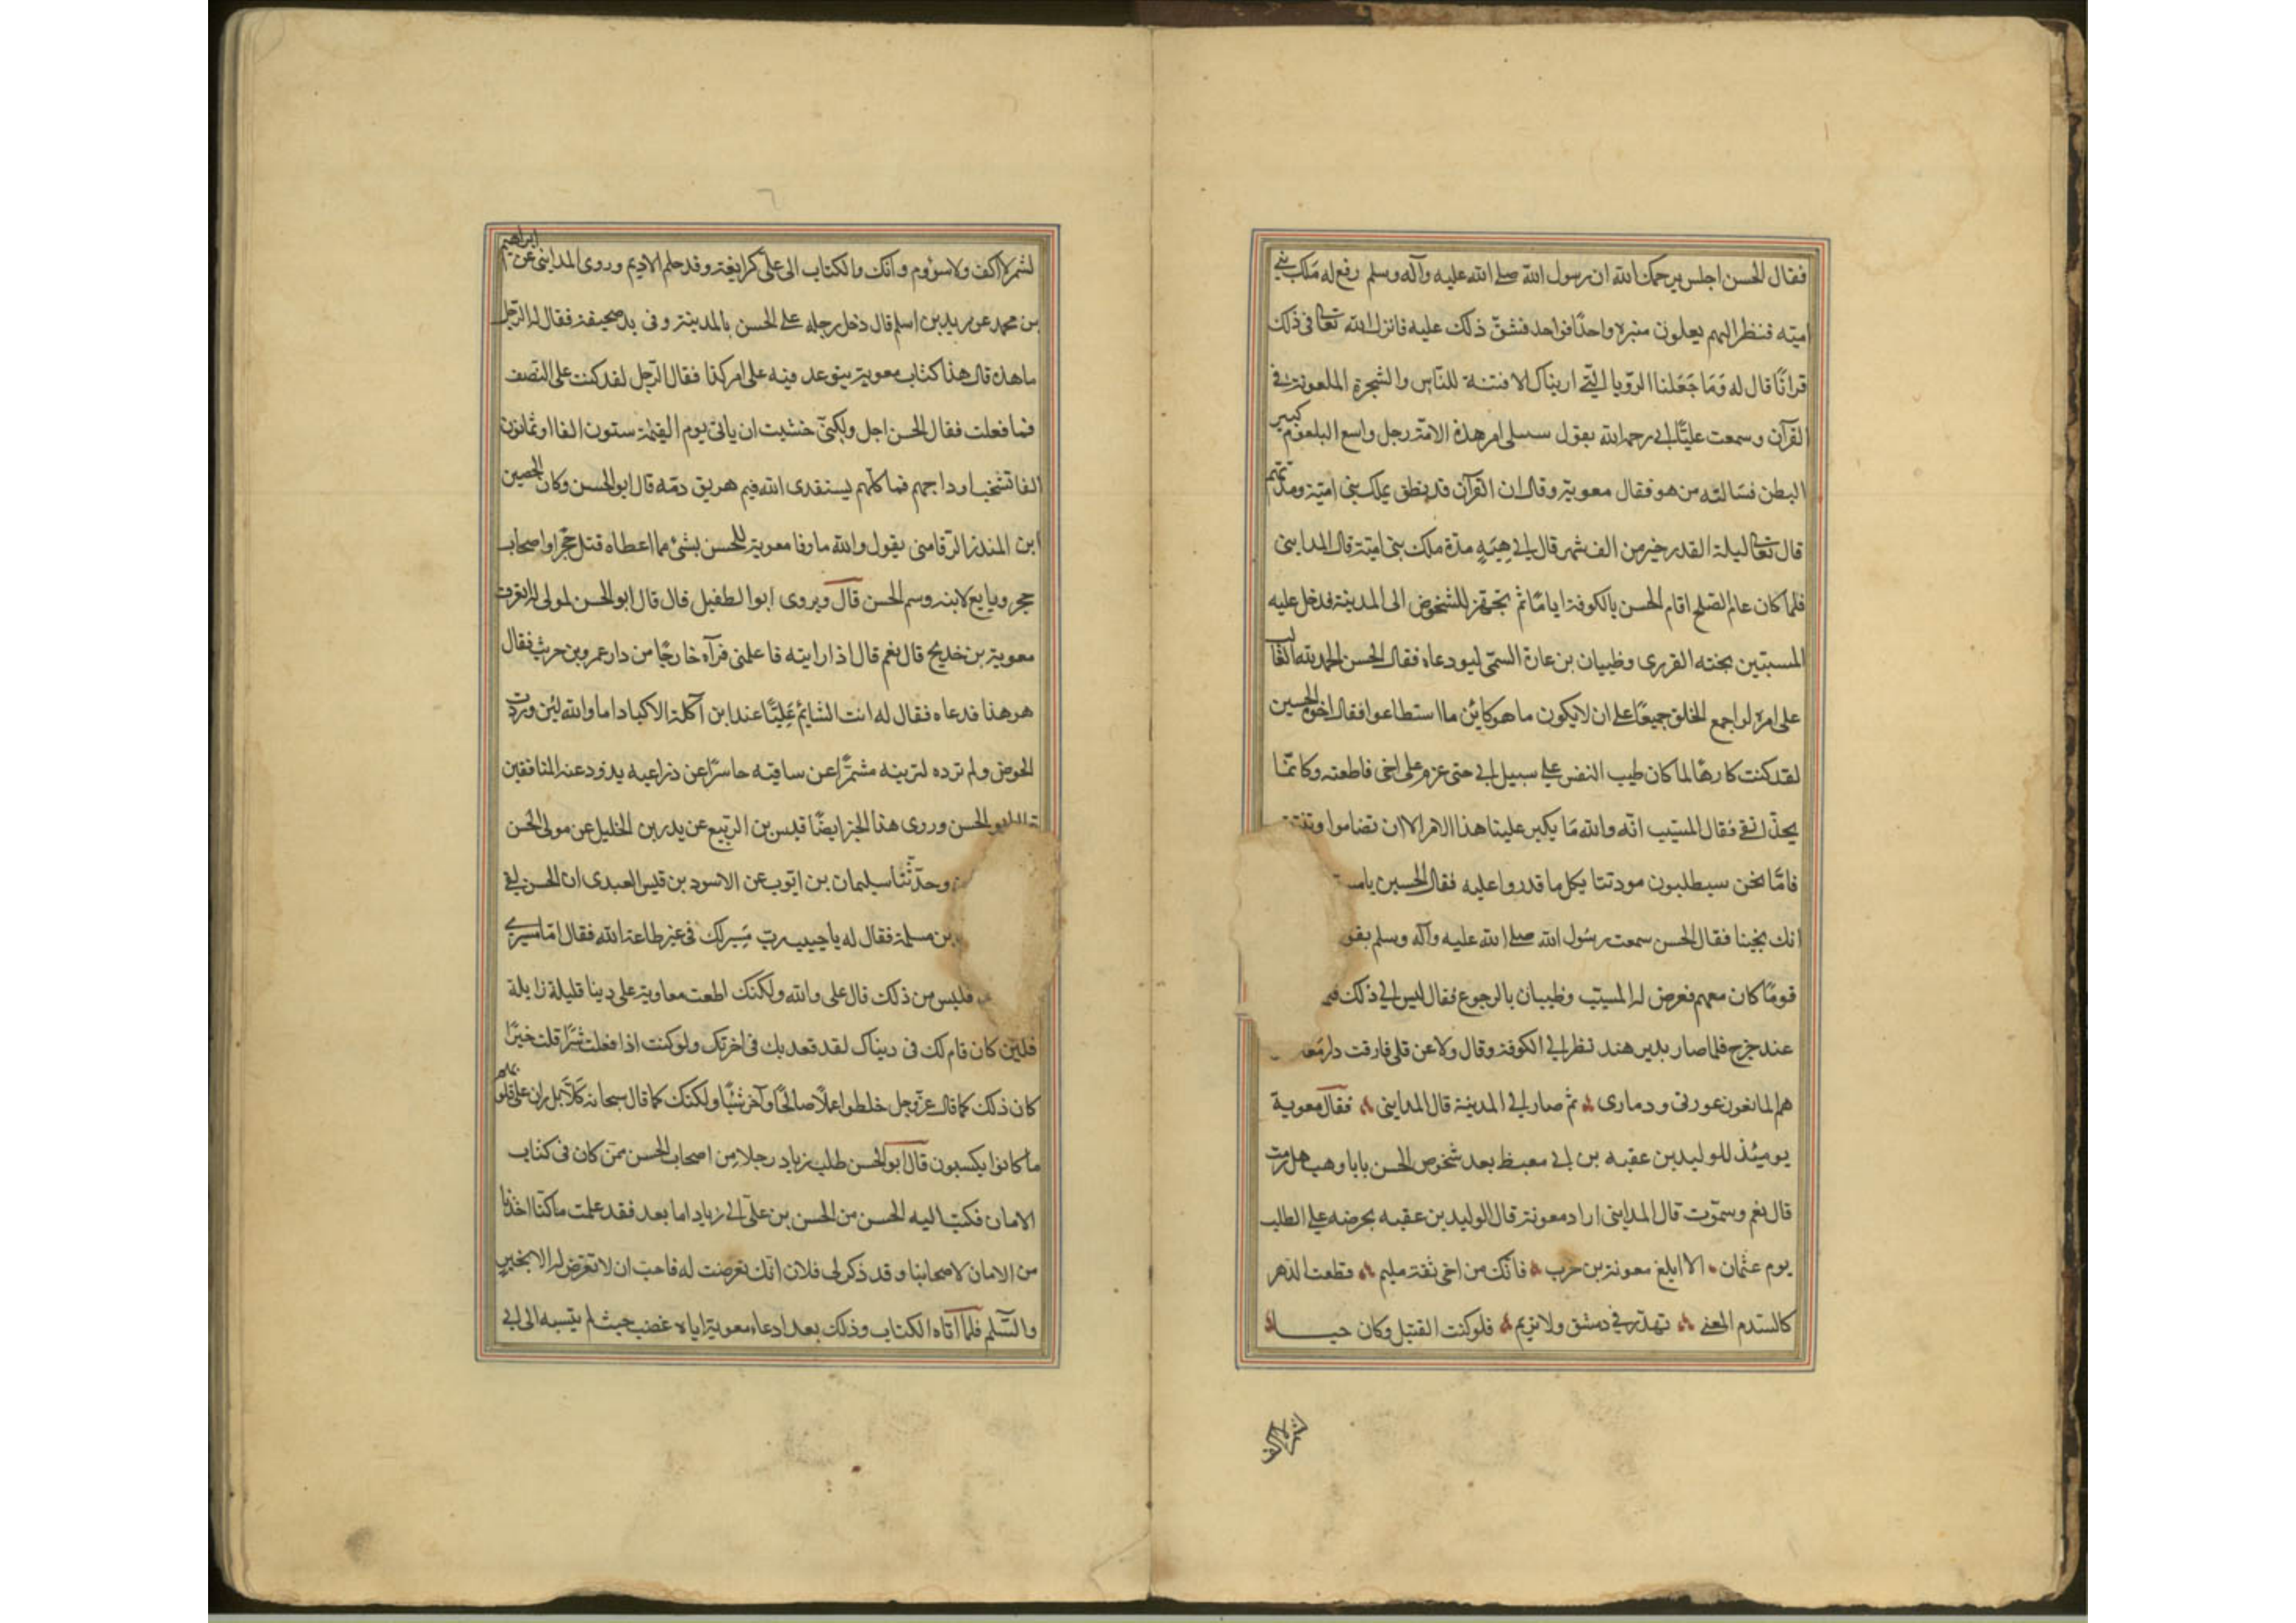 فقال الحسن اجلس يرحمك الله ان رسول الله صلى الله عليه وآله وسلم رفع له ملك بني
اميته فنظر اليهم يعلون منبره واحدًا فواحد فشقّ ذلك عليه فانزل الله تعالى في ذلك
قرانًا قال له وَمَا جَعَلنا الروّيا التي اريناك الا فتنة للنّاس والشجرة الملعونة في
القرآن وسمعت عليًّا ابي رحمه الله يقول سيلى امر هذه الامّة رجل واسع البلعوم كبير
البطن فسَالته من هو فقال معوية وقال ان القرآن قد نطق بملك بني اميّة ومدّتهم
قال تعالى ليلة القدر خير من الف شهر قال ابي هِيَهِ مدّة ملك بني اميّة قال المدايني
فلما كان عام الصّلح اقام الحسن بالكوفة ايامًا ثم تجهّز للشخوص الى المدينة فدخل عليه
المسيّب بن القزرى وظبيان بن عارة السمّى ليودعاه فقال الحسن الحمد لله الغالب
على امره لو اجمع الخلق جميعًا على ان لا يكون ما هو كاين ما استطاعوا فقال اخوه الحسين
لقد كنت كارهًا لما كان طيب النفس على سبيل ابي حتى عزم على اخى فاطعته وكانّما
يحذّ انفي فقال المسيّب انّه والله مَا يكبر علينا هذا الامر الا ان تضاموا
فامّا نحن سيطلبون مودتنا بكل ما قدروا عليه فقال الحسين يا
انك تحبنا فقال الحسن سمعت رسُول الله صلى الله عليه وآله وسلم يقو
قومًا كان معهم فعرض له المسيّب وظبيان بالرجوع فقال ليس لي ذلك
عند خرج فلما صار بدير هند نظر الى الكوفة وقال ولا عن قلى فارقت دار
هم المانعون عورتى ودمارى ثم صار الى المدينة قال المدايني فقال معوية
يومئذ للوليد بن عقبه بن ابي معيط بعد شخوص الحسن يا با وهب هل رمت
قال نعم وسموّت قال المدايني اراد معونة قال الوليد بن عقبه يحرضه على الطلب
يوم عثمان الا ابلغ معونة بن حرب فانّك من اخى ثقة مليم قطعت الدّهر
كالسّدم المعنى تهدّر في دمشق ولا تريم فلو كنت القتيل وكان حيا
لشمر لا اكف ولا سؤوم وانك والكتاب الى علىّ كرابغة وقد حلم الاديم وروى المدايني عن ابراهيم
بن محمد عن زيد بن اسلم قال دخل رجله على الحسن بالمدينة وفى يده صحيفة فقال له الرّجل
ما هذه قال هذا كتاب معوية يتوعد فيه على امر كذا فقال الرّجل لقد كنت على النّصف
فما فعلت فقال الحسن اجل ولكنّى خشيت ان ياتى يوم القيٰمة ستون الفا او ثمانون
الفا تشخب اوداجهم فما كلّهم يستعدى الله فيم هريق دمّه قال ابو الحسن وكان الحصين
ابن المنذر الرّقاشى يقول والله ما وفا معوية للحسن بشئ مما اعطاه قتل حجرًا واصحاب
حجر وبايع لابنه وسم الحسن قال ويروى ابو الطفيل قال قال ابو الحسن لمولى له اتعرف
معوية بن خديج قال نعم قال اذا رايته فاعلمنى فرآه خارجًا من دار عمرو بن حريث فقال
هو هذا فدعاه فقال له انت الشايم عَلِيًّا عند ابن آكلة الاكباد اما والله لئن وردت
الحوض ولم ترده لترينه مشمرًّا عن ساقيه حاسرًا عن ذراعيه يذود عنه المنافقين
قال ابو الحسن وروى هذا الخبر ايضًا قيس بن الرّبيع عن بدر بن الخليل عن مولى الحسن
وحدّثنا سليمان بن ايّوب عن الاسود بن قيس العبدى ان الحسن لقى
بن مسلمة فقال له يا حبيب ربّ مَسِير لك فى غير طاعة الله فقال امّا مسيرى
فليس من ذلك قال على والله ولكنك اطعت معاوية على دينا قليلة زايلة
فلئن كان قام لك فى دنياك لقد قعد بك فى اخرتك ولو كنت اذا فعلت شرًّا قلت خيرًا
كان ذلك كما قال عزّ وجل خلطوا عملًا صالحًا وآخر سيّئًا ولكنك كما قال سبحانه كَلّا بل ران على قلوبهم
ما كانوا يكسبون قال ابو الحسن طلب زياد رجلا من اصحاب الحسن ممّن كان فى كتاب
الامان فكتب اليه الحسن من الحسن بن علىّ الى زياد اما بعد فقد علمت ما كنّا اخذنا
من الامان لاصحابنا وقد ذكر لى فلان انّك تعرضت له فاحبّ ان لا تعرّض له الا بخير
والسّلم فلمّا اتاه الكتاب وذلك بعد ادعاء معوية اياه غضب حيث لم ينسبه الى ابى